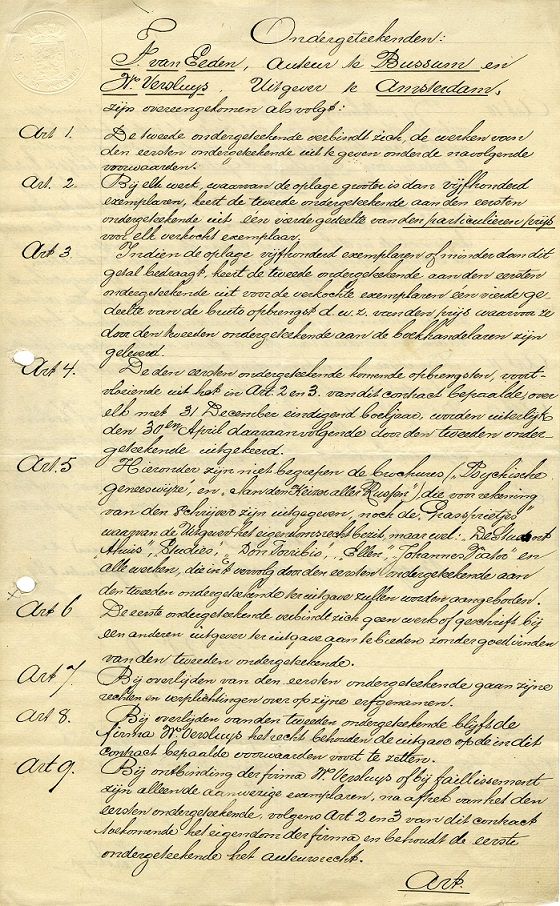 Ondergeteekenden:
F. van Eeden, auteur te Bussum en
W. Versluys, Uitgever te Amsterdam,
zijn overeengekomen als volgt:
Art 1. De tweede ondergeteekende verbindt zich, de werken van
den eersten ondergeteekende uit te geven onder de navolgende
voorwaarden.
Art. 2. Bij elk werk, waarvan de oplage grooter is dan vijfhonderd
exemplaren, keert de tweede ondergeteekende aan den eersten
ondergeteekende uit een vierde gedeelte van den particulieren prijs
voor elk verkocht exemplaar.
Art 3 Indien de oplage vijfhonderd exemplaren of minder dan dit
getal bedraagt, keert de tweede ondergeteekende aan den eersten
ondergeteekende uit voor de verkochte exemplaren één vierde ge-
deelte van de bruto opbrengst d.w.z. van den prijs waarvoor ze
door den tweeden ondergeteekende aan de boekhandelaren zijn
geleverd.
Art 4. De den eersten ondergeteekende komende opbrengsten, voort-
vloeiende uit het in Art. 2 en 3. van dit contract bepaalde, over
elk met 31 December eindigend boekjaar, worden uiterlijk
den 30en April daaraanvolgende door den tweeden onder
geteekende uitgekeerd.
Art. 5 Hieronder zijn niet begrepen de brochures ("Psychische
geneeswijze", en, "Aan den Keizer aller Russen"), die voor rekening
van den schrijver zijn uitgegeven, noch de "Grassprietjes"
waarvan de Uitgever het eigendomsrecht bezit, maar wel: "De Student
Thuis", "Studies", "Don Torribio", "Ellen", "Johannes Viator" en
alle werken, die in 't vervolg door den eersten ondergeteekende aan
den tweeden ondergeteekende ter uitgave zullen worden aangeboden.
Art 6 De eerste ondergeteekende verbindt zich geen werk of geschrift bij
een anderen uitgever ter uitgave aan te bieden zonder goedvinden
van den tweeden ondergeteekende.
Art 7. Bij overlijden van den eersten ondergeteekende gaan zijne
rechten en verplichtingen over op zijne erfgenamen.
Art 8. Bij overlijden van den tweeden ondergeteekende blijft de
firma W. Versluys het recht behouden de uitgave op de in dit
contract bepaalde voorwaarden voort te zetten.
Art 9. Bij ontbinding der firma W. Versluys of bij faillissement
zijn alleen de aanwezige exemplaren, na aftrek van het den
eersten ondergeteekende, volgens Art 2 en 3 van dit contract
toekomende het eigendom der firma en behoudt de eerste
ondergeteekende het auteursrecht.
Art.